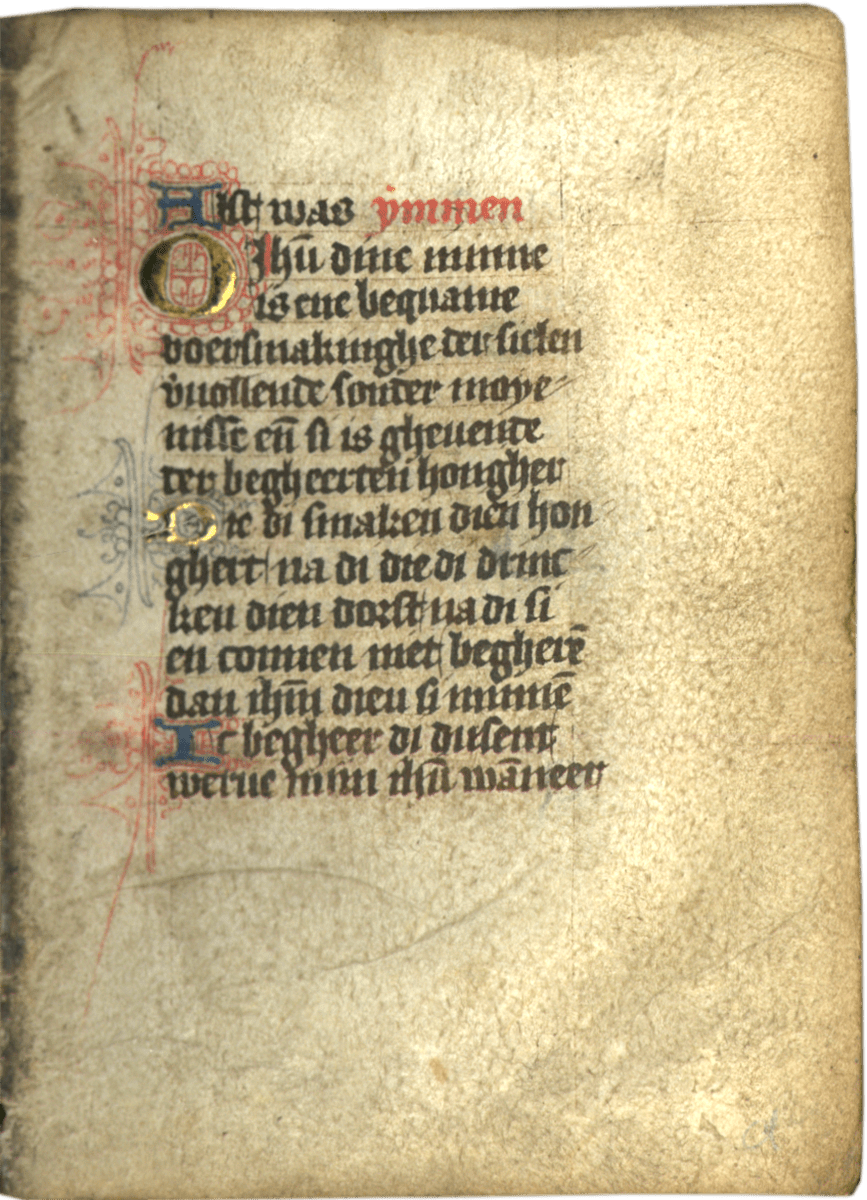 Alst was ẏmmen
O Jhū dine minne
is ene bequame
voersmakinghe der sielen
v̾uollende sonder moye⸗
nisse en̄ si is gheuende
der begheerten hongher
Die di smaken dien hon⸗
ghert na di die di drinc⸗
ken dien dorst na di si
en connen niet begherē
dan ihm̄ dien si minnē
Ic begheer di dusent
werue mijn ihū wāneer